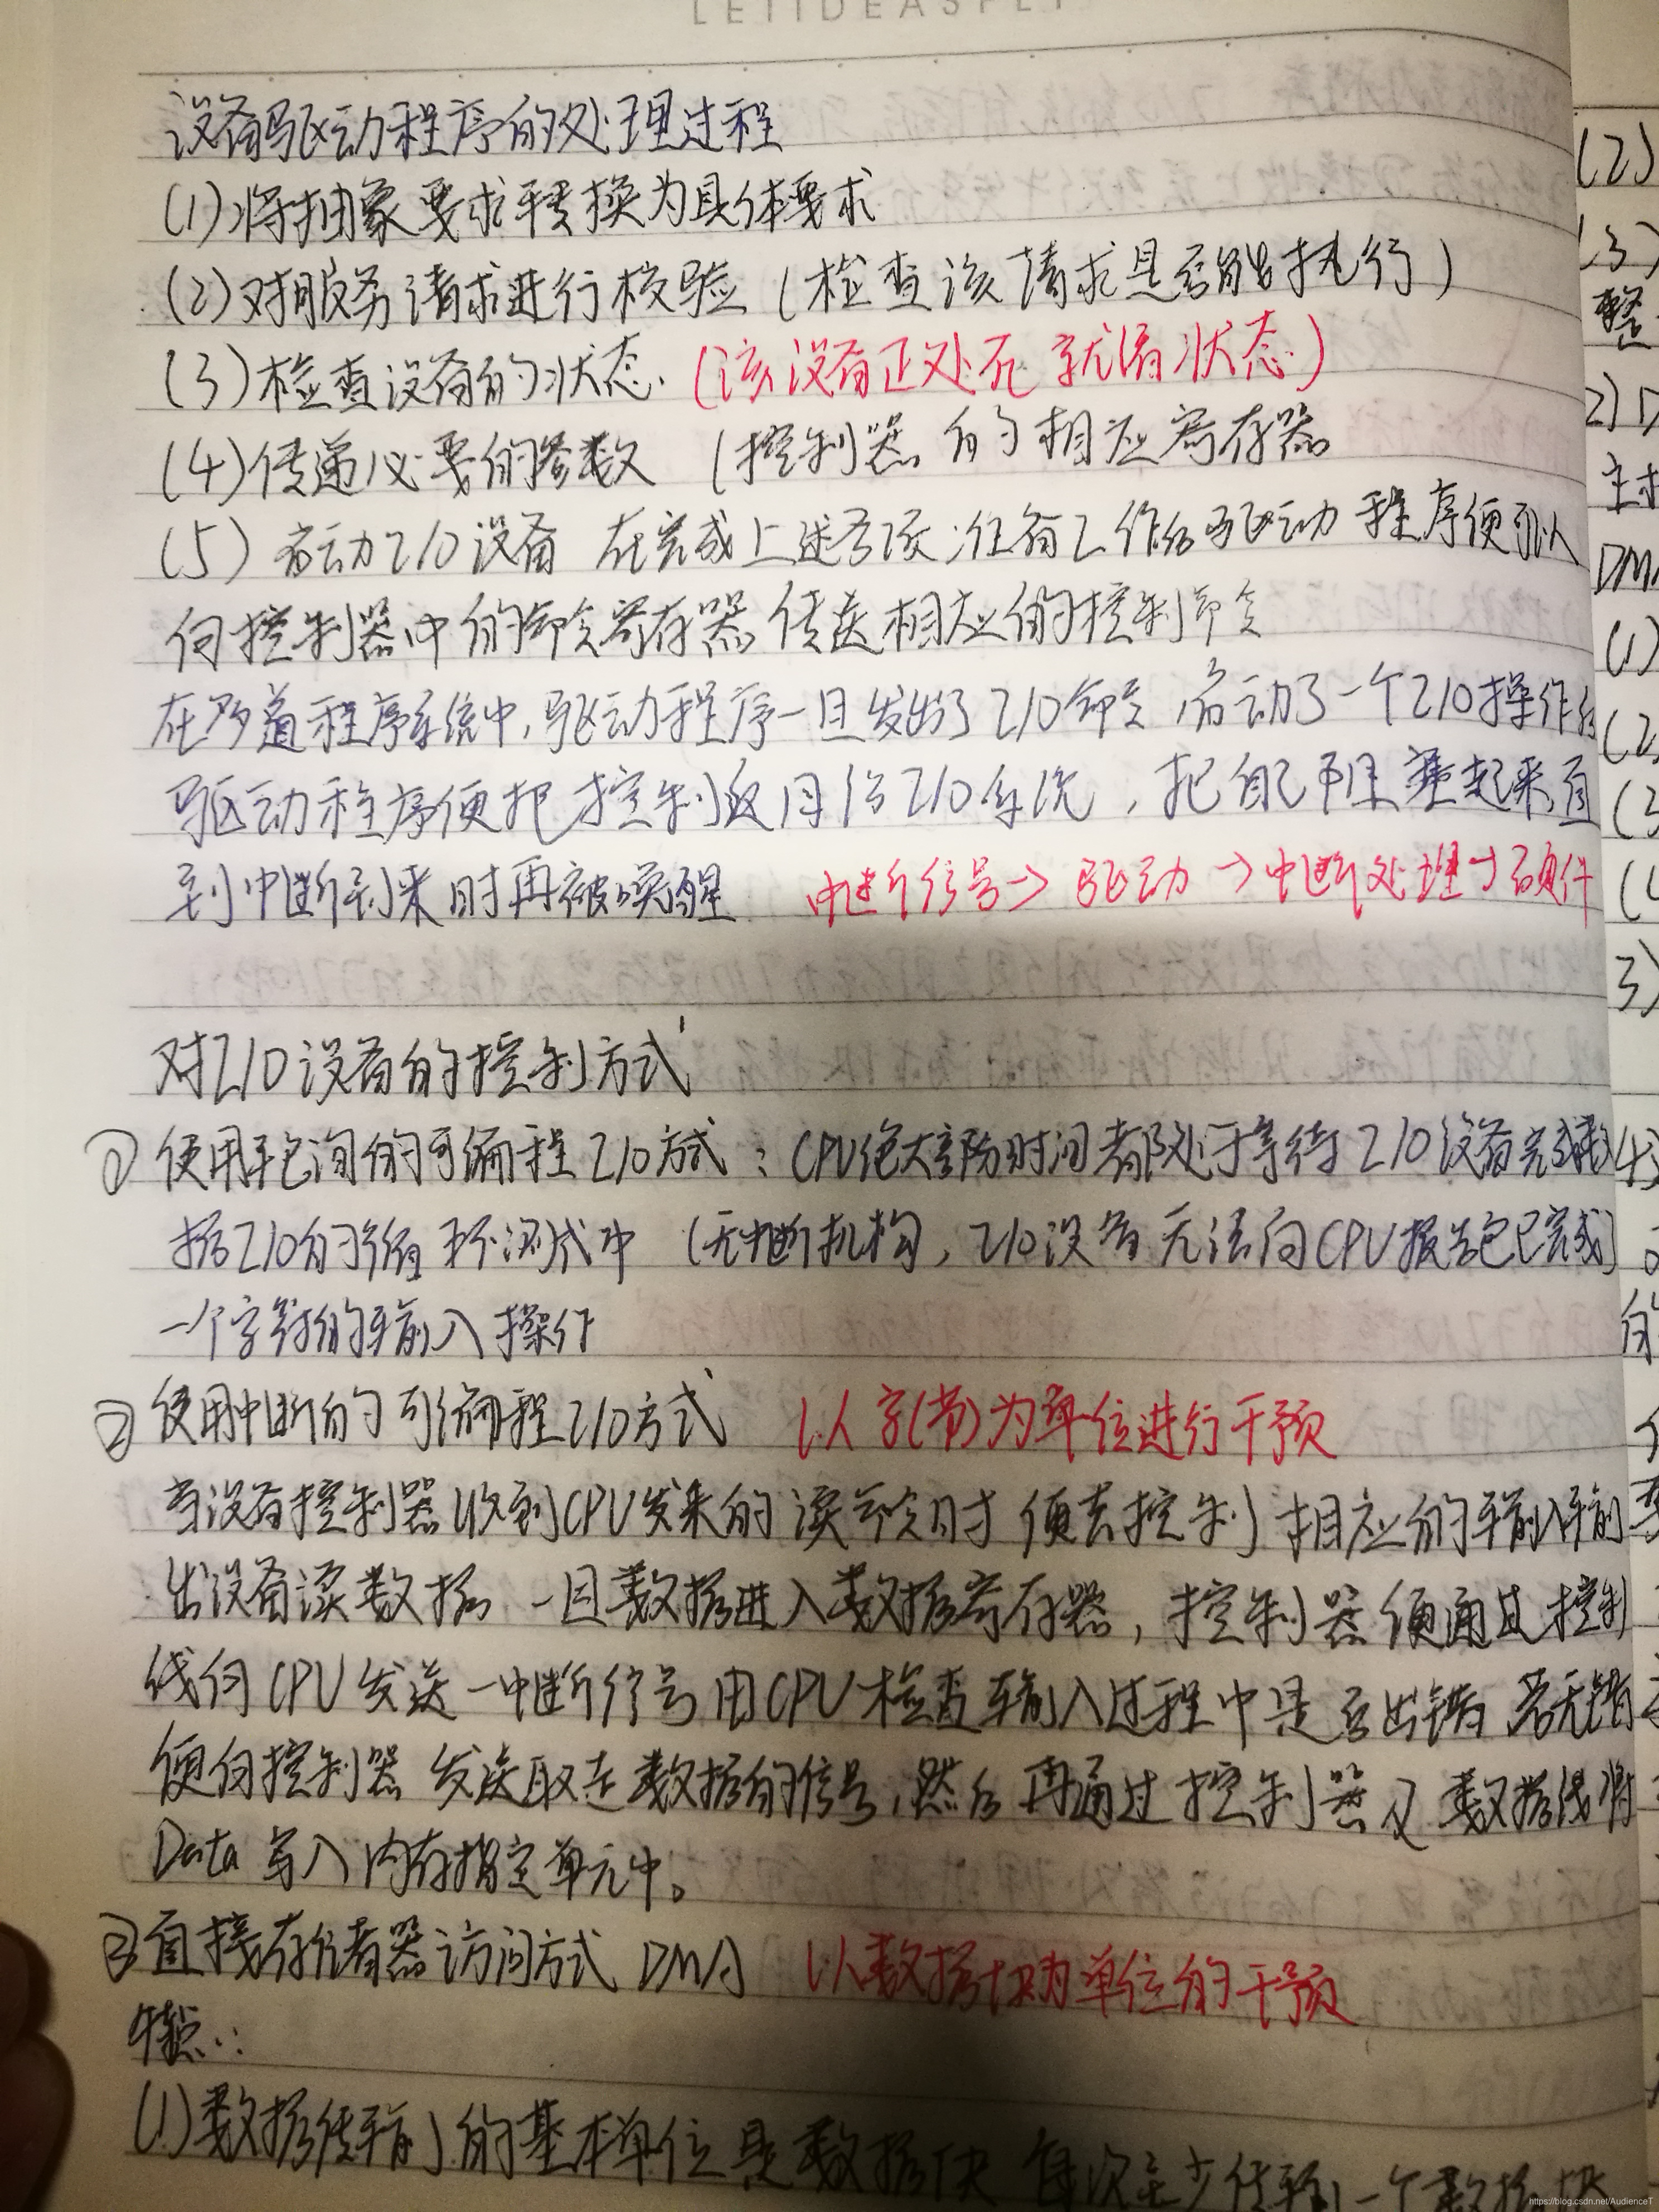 LETIDEASFLY
设备驱动程序的处理过程
(1)将抽象要求转换为具体要求
(2)对服务请求进行校验 (检查该请求是否能执行)
(3)检查设备的状态. (该设备正处于就绪状态)
(4)传递必要的参数 (控制器的相应寄存器
(5) 启动I/O设备 在完成上述各项准备工作后驱动程序便可以
向控制器中的命令寄存器传送相应的控制命令
在多道程序系统中,驱动程序一旦发出了I/O命令,启动了一个I/O操作后
驱动程序便把控制返回给I/O系统,把自己阻塞起来直
到中断到来时再被唤醒 中断信号→驱动→中断处理→硬件
对I/O设备的控制方式
① 使用轮询的可编程I/O方式:CPU绝大部分时间都处于等待I/O设备完成数
据I/O的循环测试中 (无中断机构,I/O设备无法向CPU报告已完成
一个字符的输入操作
② 使用中断的可编程I/O方式 以字(节)为单位进行干预
当设备控制器收到CPU发来的读命令时 便去控制相应的输入输
出设备读数据 一旦数据进入数据寄存器,控制器便通过控制
线向CPU发送一中断信号 由CPU检查输入过程中是否出错 若无错
便向控制器发送取走数据的信号,然后再通过控制器及数据线将
Data写入内存指定单元中。
③直接存储器访问方式 DMA 以数据块为单位的干预
特点:
(1)数据传输的基本单位是数据块 每次至少传输一个数据块
(2)
(3)
整
2)
DMA
(1)
3)
https://blog.csdn.net/AudienceT